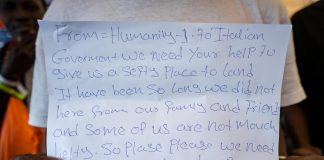 From = Humanity-1. To Italian
Goverment we need your help to
give us a Sefty Place to land
It have been So long we did not
here from our Family and Friend
and Some of us are not Mouch
helty. So Plase Please we need